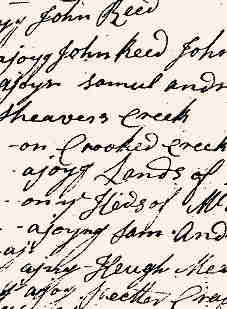 John Reed
ajoyg John Reed John
ajoyn Samul andr
heavers Creek
on Crooked Creek
ajoyg Lands of
on ye Heds of Mc
ajoyng Sam And
ajoyg Heugh Mc
ajoy Hector Cra